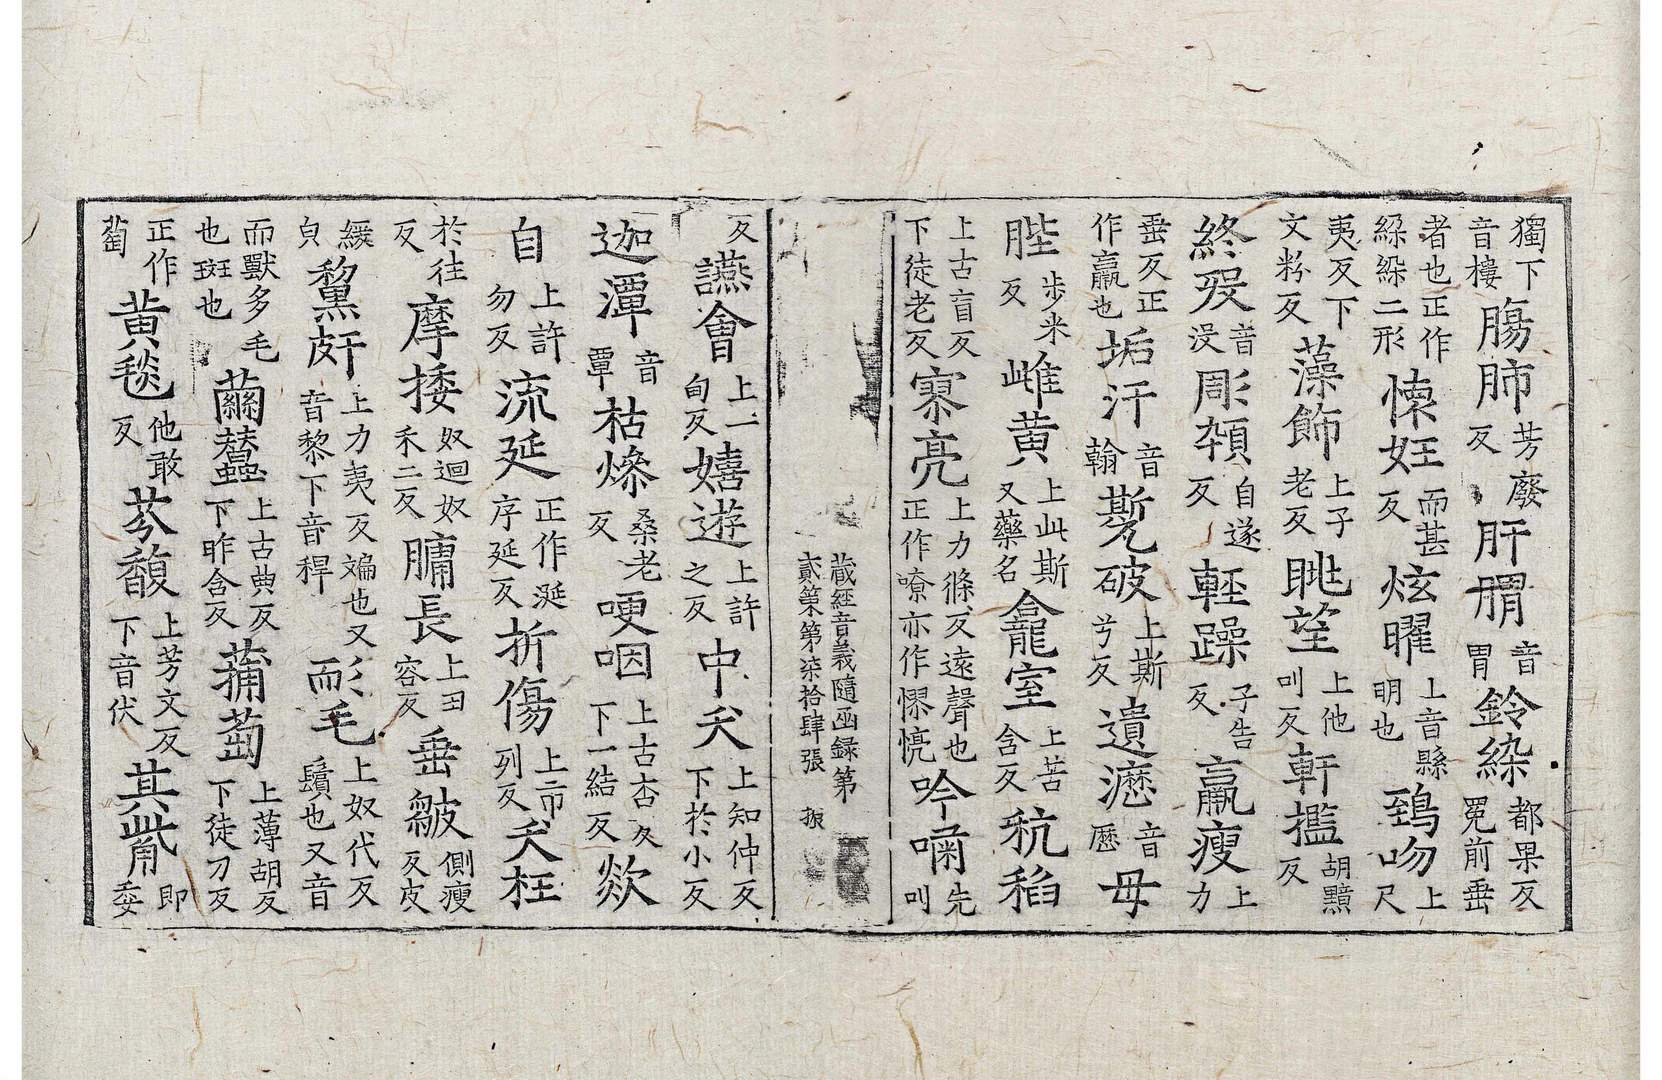 獨下音樓腸肺芳廢反肝𦛢音胃鈴綵都果反冕前垂
者也正作綵綵二形悚妊而甚反炫曜上音縣明也鵄吻上尺
夷反下文粉反藻飾上子老反眺望上他叫反軒檻胡黤反
終歿音没彫顇自遂反輕躁子告反羸瘦上力
垂反正作羸也垢汗音翰㪿破上斯兮反遺瀝音歷母
䏶步米反雌黄上此斯反藥名龕室上苦含反秔稻
上古盲反下徒老反寮亮上力條反遠聲也正作嘹亦作憀㤺吟嘯先叫
藏經音義隨函録第貳第柒拾肆張 振
反讌會上一甸反嬉遊上許之反中夭上知仲反下於小反
迦潭音覃枯燥桑老反哽咽上古杏反下一結反欻
自上許勿反流延正作涎序延反折傷上市列反夭枉
於往反摩捼奴迴奴禾二反𦟛長上丑容反垂皺側瘦反皮
緩皃黧皯上力夷反斑也又音黎下音稈耏毛上奴代反鬚也又音
而獸多毛也斑也繭蠶上古典反下昨含反蒱萄上薄胡反下徒刀反
正作萄黄毯他敢反芬馥上芳文反下音伏其觜即委